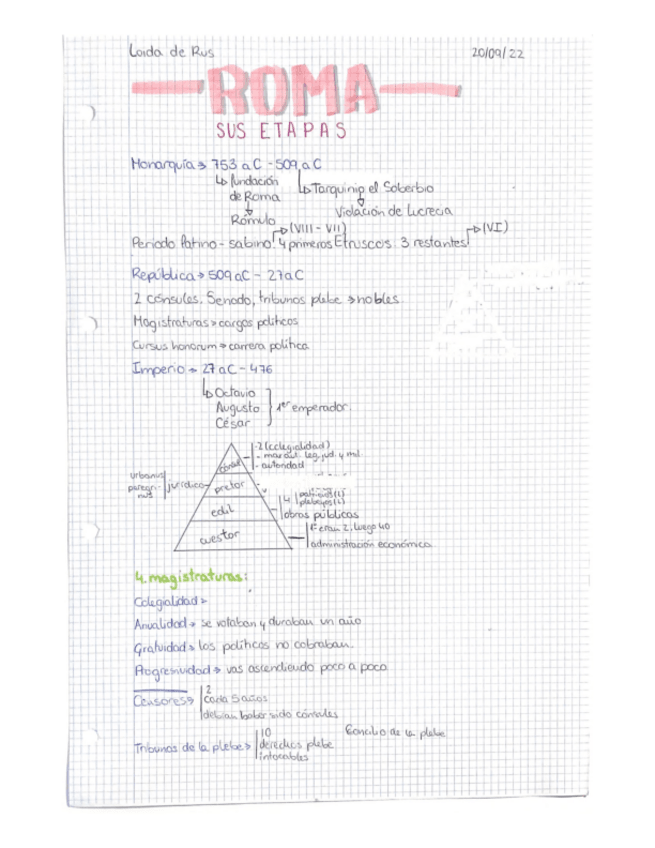 Loida de Rus 20/09/22
ROMA
SUS ETAPAS
Monarquía → 753 a C - 509 a C
↳ fundación de Roma → Rómulo
↳ Tarquinio el Soberbio → Violación de Lucrecia
(VIII - VII) (VI)
Periodo latino - sabino: 4 primeros Etruscos: 3 restantes
República → 509 aC - 27 aC
2 cónsules, Senado, tribunos plebe → nobles
Magistraturas → cargos políticos
Cursus honorum → carrera política
Imperio → 27 aC - 476
↳ Octavio
Augusto
César
1er emperador.
cónsul
- 2 (colegialidad)
- max aut. leg, jud. y mil.
- autoridad
urbanus
peregrinus
jurídico
pretor
edil
4
patricios (2)
plebeyos (2)
obras públicas
cuestor
1º eran 2, luego 40
administración económica
4. magistraturas:
Colegialidad →
Anualidad → se votaban y duraban un año
Gratuidad → los políticos no cobraban.
Progresividad → vas ascendiendo poco a poco
Censores →
2
cada 5 años
debían haber sido cónsules
Tribunos de la plebe →
10
derechos plebe
intocables
Concilio de la plebe